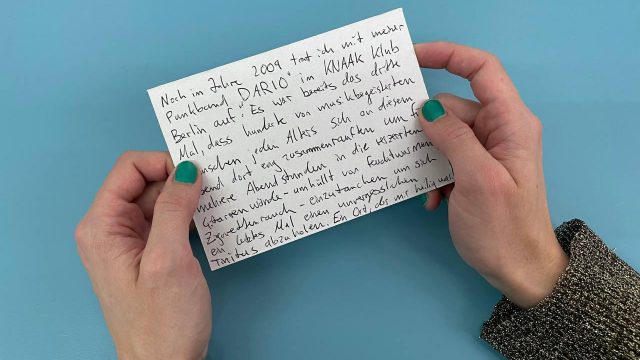 Noch im Jahre 2009 trat ich mit meiner
Punkband "DARIO" im KNAAK Klub
Berlin auf. Es war bereits das dritte
Mal, dass hunderte von musikbegeisterten
Menschen jeden Alters sich an diesem
Abend dort eng zusammenrauften um
mehrere Abendstunden in die verzerrten
Gitarrenwände - umhüllt von feuchtwarmen
Zigarettenrauch - einzutauchen um sich
ein letztes Mal einen unvergesslichen
Tinitus abzuholen. Ein Ort, der mir heilig war.